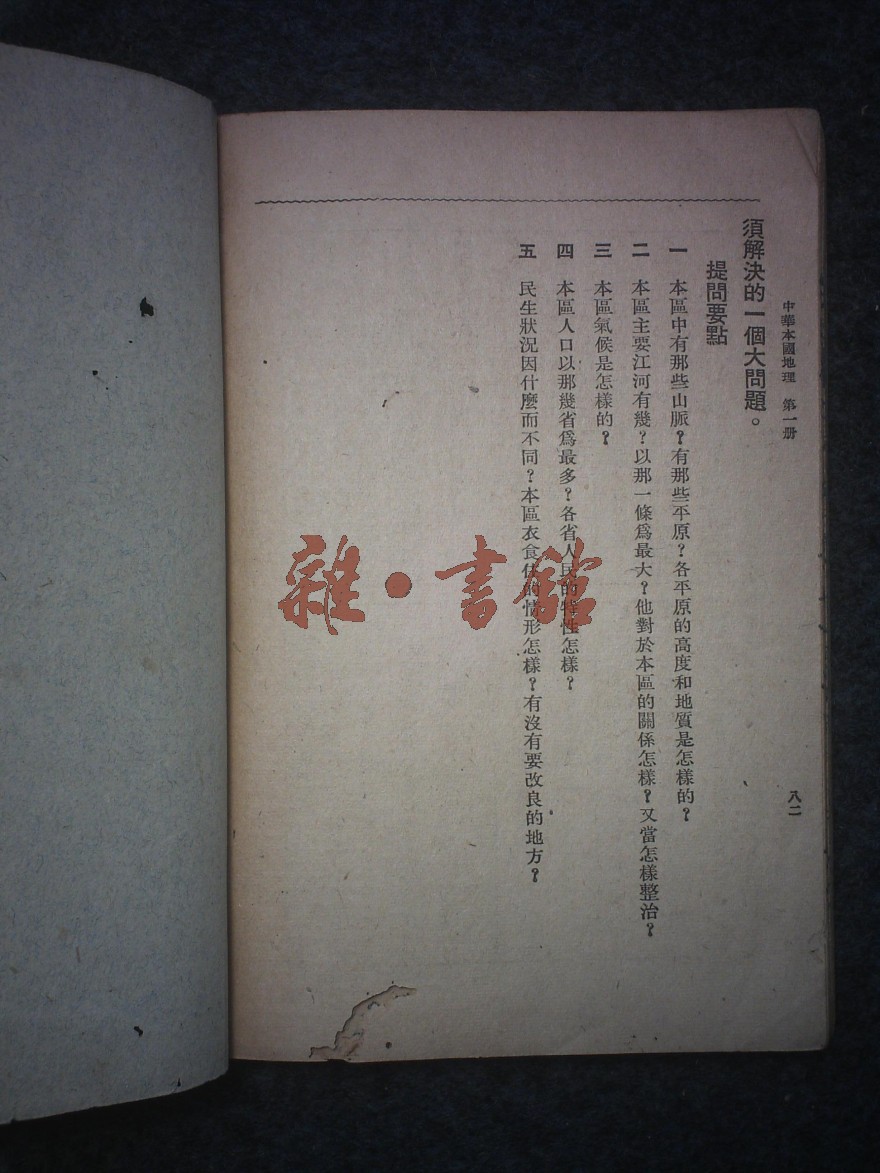 中華本國地理　第一册
八二
須解決的一個大問題。
提問要點
一　本區中有那些山脈？有那些平原？各平原的高度和地質是怎樣的？
二　本區主要江河有幾？以那一條爲最大？他對於本區的關係怎樣？又當怎樣整治？
三　本區氣候是怎樣的？
四　本區人口以那幾省爲最多？各省人民的特性怎樣？
五　民生狀況因什麼而不同？本區衣食住的情形怎樣？有沒有要改良的地方？
雜·書館